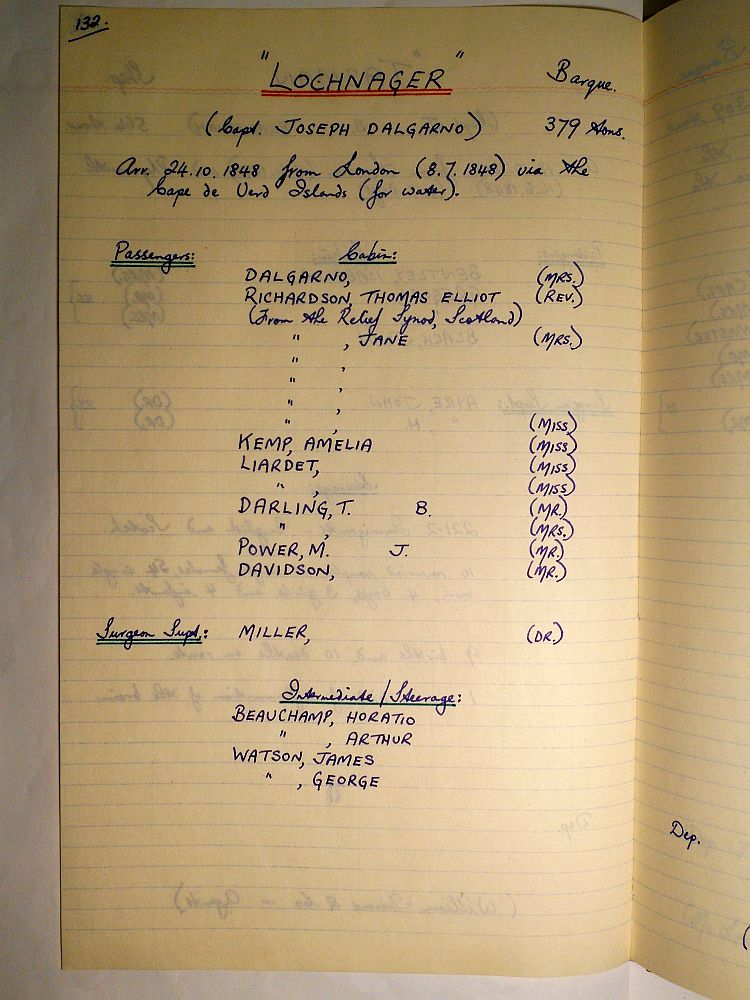 132.
"LOCHNAGER" Barque.
(Capt. JOSEPH DALGARNO) 379 tons.
Arr. 24.10.1848 from London (8.7.1848) via the
Cape de Verd Islands (for water).
Passengers: Cabin:
DALGARNO, (MRS.)
RICHARDSON, THOMAS ELLIOT (REV.)
(From the Relief Synod, Scotland)
" , JANE (MRS.)
" ,
" ,
" ,
" , (MISS)
KEMP, AMELIA (MISS)
LIARDET, (MISS)
" , (MISS)
DARLING, T. B. (MR.)
" , (MRS.)
POWER, M. J. (MR.)
DAVIDSON, (MR.)
Surgeon Supt.: MILLER, (DR.)
Intermediate / Steerage:
BEAUCHAMP, HORATIO
" , ARTHUR
WATSON, JAMES
" , GEORGE
Dep.